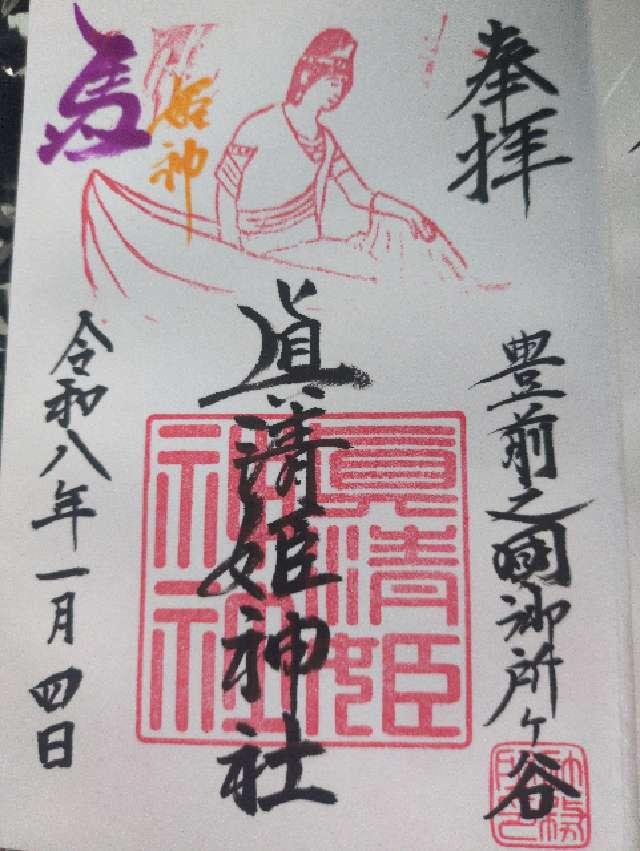 奉拝
豊前之國御所ヶ谷
眞清姫神社
眞清姫神社
姫神
令和八年一月四日